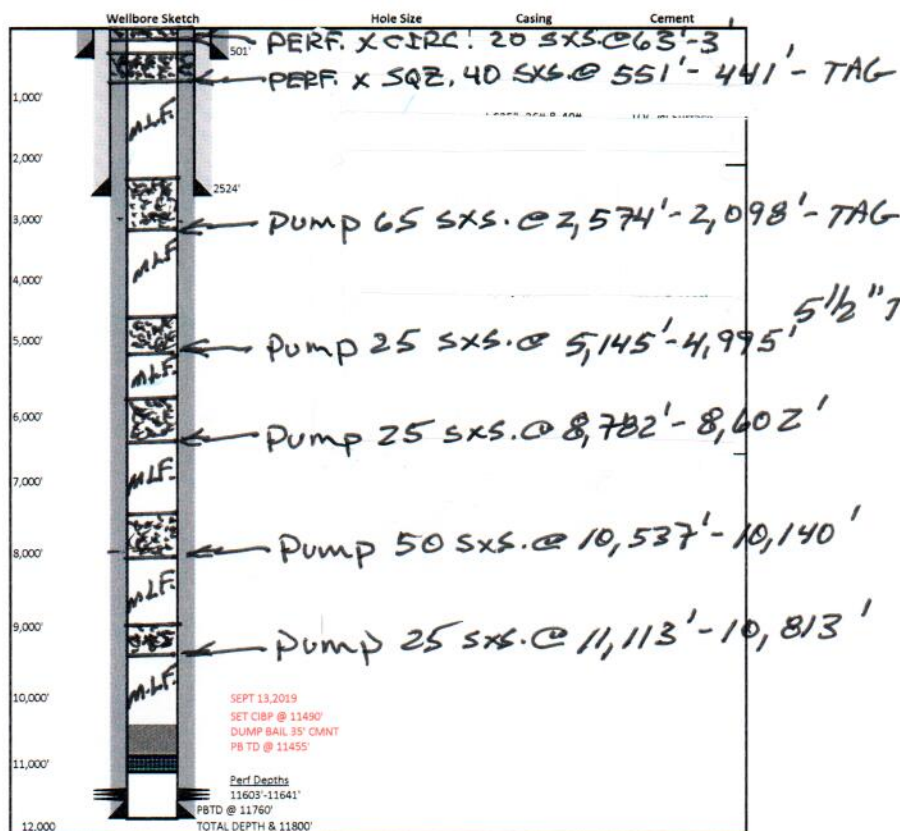 Wellbore Sketch Hole Size Casing Cement
PERF. X CIRC. 20 SXS.@63'-3'
501'
PERF. X SQZ. 40 SXS.@ 551'-441'-TAG
1,000'
M.L.F.
2,000'
2524'
3,000'
Pump 65 SXS.@2,574'-2,098'-TAG
MLF
4,000'
5 1/2"
5,000'
Pump 25 SXS.@ 5,145'-4,995'
MLF.
6,000'
Pump 25 SXS.@ 8,782'-8,602'
MLF.
7,000'
8,000'
Pump 50 SXS.@ 10,537'-10,140'
MLF.
9,000'
Pump 25 SXS.@ 11,113'-10,813'
M.L.F.
10,000'
SEPT 13,2019
SET CIBP @ 11490'
DUMP BAIL 35' CMNT
PB TD @ 11455'
11,000'
Perf Depths
11603'-11641'
PBTD @ 11760'
12,000 TOTAL DEPTH & 11800'